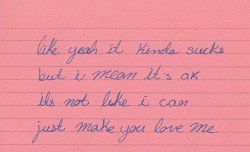 like yeah it kinda sucks
but i mean it's ok
its not like i can
just make you love me.